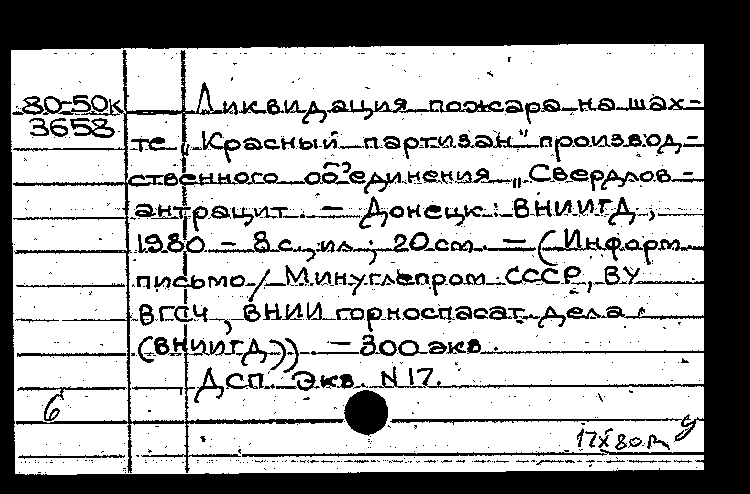 80-50к Ликвидация пожара на шах-
3658
те „Красный партизан" производ-
ственного объединения „Свердлов-
антрацит. – Донецк: ВНИИГД,
1980 – 8 с., ил.; 20 см. – (Информ.
письмо / Минуглепром СССР, ВУ
ВГСЧ, ВНИИ горноспасат. дела
(ВНИИГД)). – 300 экв.
ДСП. Экв. N 17.
б
17X80